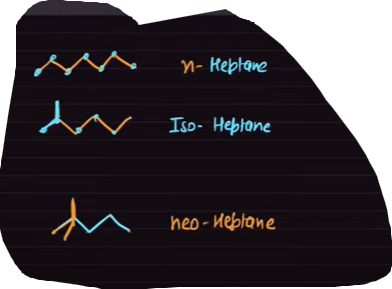 n- Heptane
Iso- Heptane
neo-Heptane